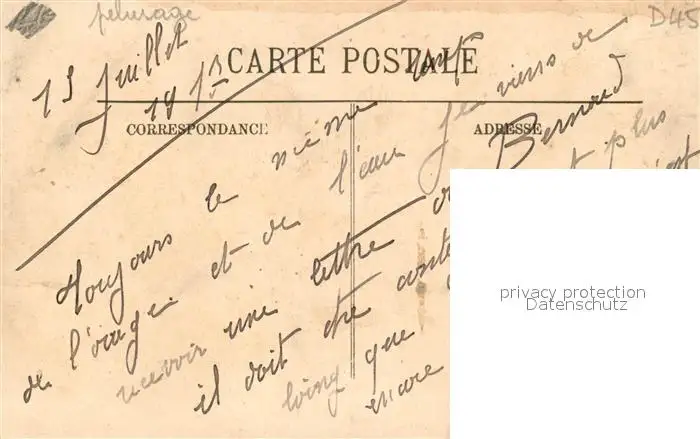 D45
15 Juillet
1915
CARTE POSTALE
CORRESPONDANCE
ADRESSE
Toujours le même temps
de l'orage et de l'eau Je viens de
recevoir une lettre de Bernard
il doit être
plus
loing que
encore
privacy protection
Datenschutz